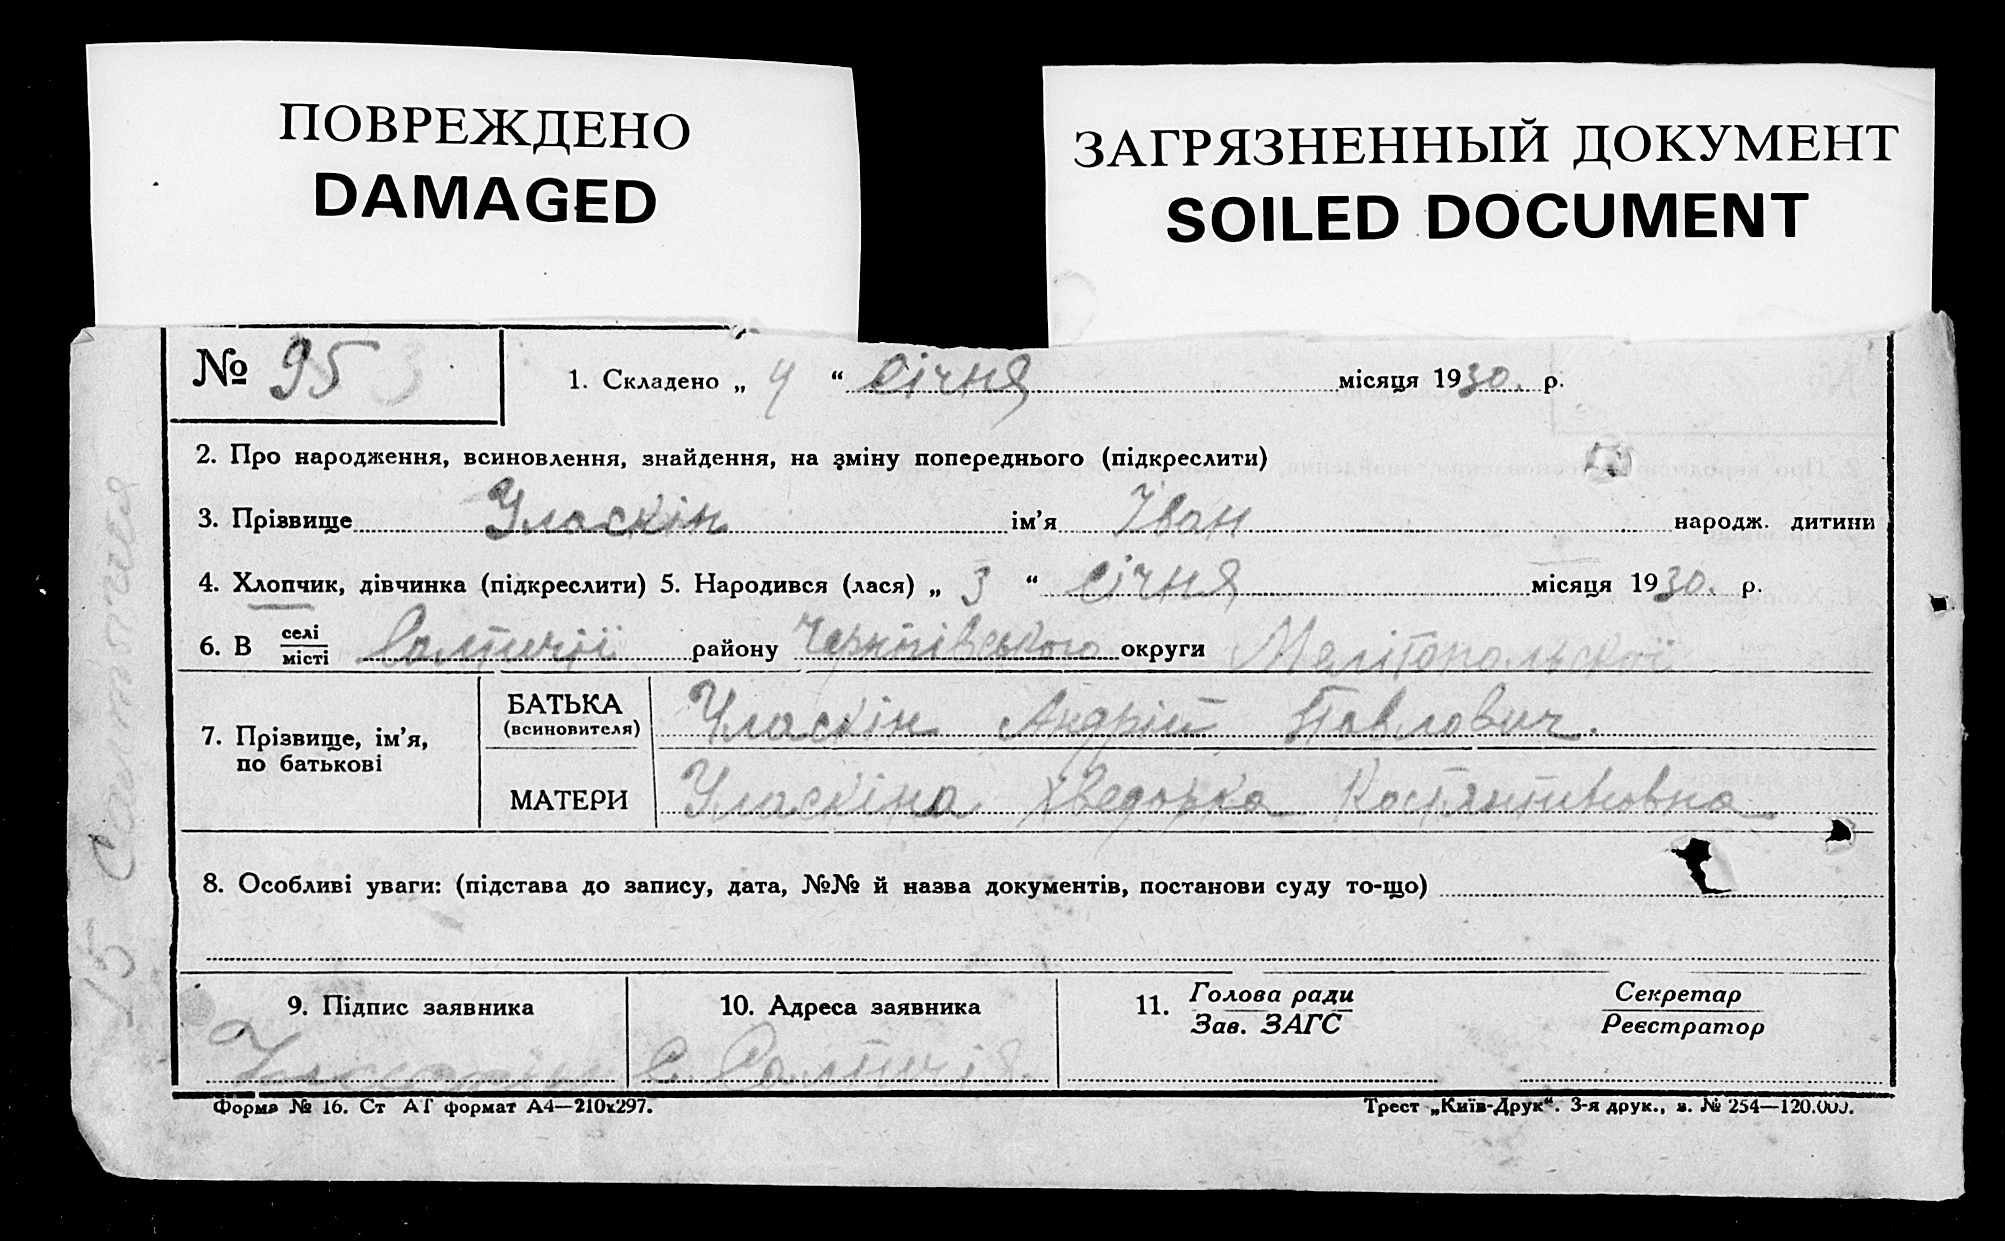 ПОВРЕЖДЕНО
DAMAGED
ЗАГРЯЗНЕННЫЙ ДОКУМЕНТ
SOILED DOCUMENT
№ 95 3
1. Складено „ 4 “ січня місяця 1930. р.
2. Про народження, всиновлення, знайдення, на зміну попереднього (підкреслити)
3. Прізвище Уласкін ім’я Іван народж. дитини
4. Хлопчик, дівчинка (підкреслити) 5. Народився (лася) „ 3 “ січня місяця 1930. р.
6. В селі
місті Салтичії району Чернігівського округи Мелітопольскої
7. Прізвище, ім’я,
по батькові
БАТЬКА
(всиновителя)
Уласкін Андрій Павлович.
МАТЕРИ Уласкіна Хведорка Костянтиновна
8. Особливі уваги: (підстава до запису, дата, №№ й назва документів, постанови суду то-що)
9. Підпис заявника
Уласкін
10. Адреса заявника
С. Салтичія
11. Голова ради
Зав. ЗАГС
Секретар
Реєстратор
Форма № 16. Ст АГ формат А4—210х297.
Трест „Київ-Друк“. 3-я друк., з. № 254—120.000.
15 Салтичия